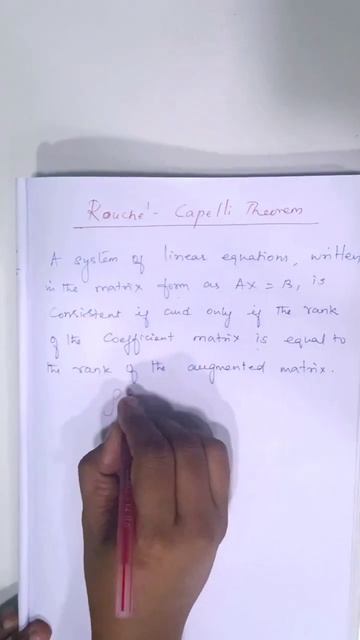 Rouche' - Capelli Theorem
A system of linear equations, written
in the matrix form as AX = B, is
consistent if and only if the rank
of the coefficient matrix is equal to
the rank of the augmented matrix.